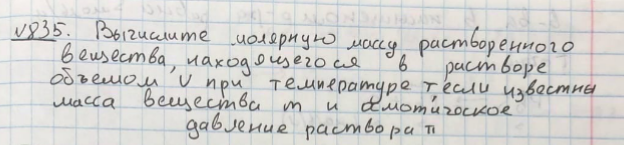 √835. Вычислите молярную массу растворенного
вещества, находящегося в растворе
объемом V при температуре T, если известны
масса вещества m и осмотическое
давление раствора π